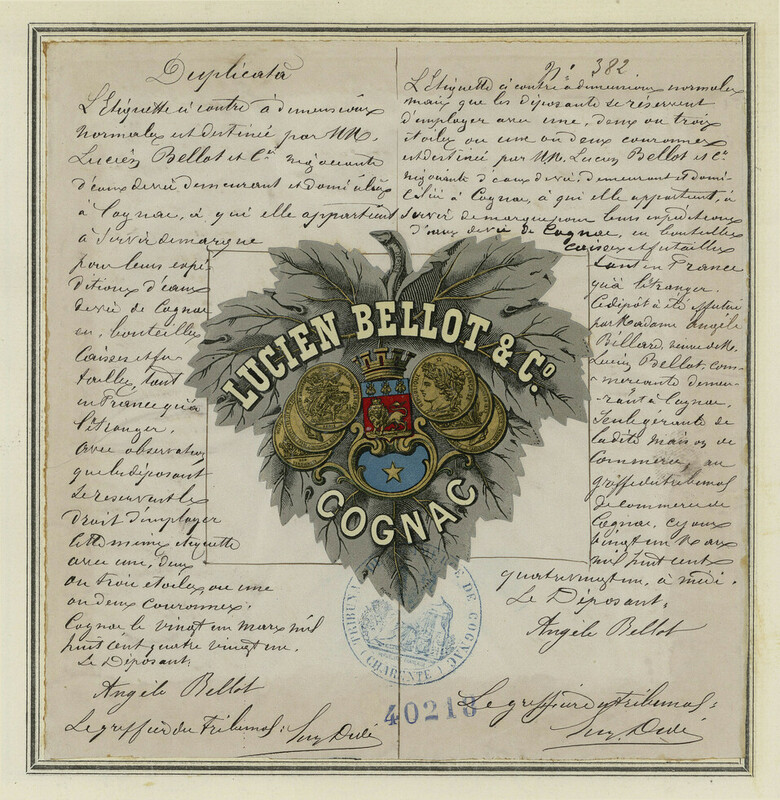 Duplicata
L'Etiquette ci contre à dimensions
normales est destinée par MM.
Lucien Bellot et Cie négociants
d'eaux de vie demeurant et domiciliés
à Cognac, à qui elle appartient
à servir de marque
pour leurs expé
ditions d'eaux
de vie de Cognac
en bouteilles
Caisses et fu-
tailles, tant
en France qu'à
l'étranger,
avec observation
que le déposant
se réservent le
droit d'employer
cette même étiquette
avec une, deux
ou trois étoiles, ou une
ou deux couronnes.
Cognac le vingt un mars mil
huit cent quatre vingt un.
Le Déposant,
Angèle Bellot
Le greffier du Tribunal:
No 382.
L'Etiquette ci contre à dimensions normales
mais que les déposants se réservent
d'employer avec une, deux ou trois
étoiles ou une ou deux couronnes
est destinée par MM. Lucien Bellot et Cie
négociants d'eaux de vie, demeurant et domi-
ciliés à Cognac, à qui elle appartient, à
servir de marque pour leurs expéditions
d'eaux de vie de Cognac, en bouteilles
caisses et futailles
tant en France
qu'à l'étranger.
Ce dépôt a été effectué
par Madame Angèle
Billard, veuve de M.
Lucien Bellot, com-
merçante demeu-
rant à Cognac,
seule gérante de
la dite maison de
Commerce, au
greffe du tribunal
de commerce de
Cognac, ce jour
vingt un Mars
mil huit cent
quatre vingt un, à midi.
Le Déposant,
Angèle Bellot
Le greffier du Tribunal:
LUCIEN BELLOT & Co.
COGNAC
TRIBUNAL DE COGNAC
(CHARENTE)
40213